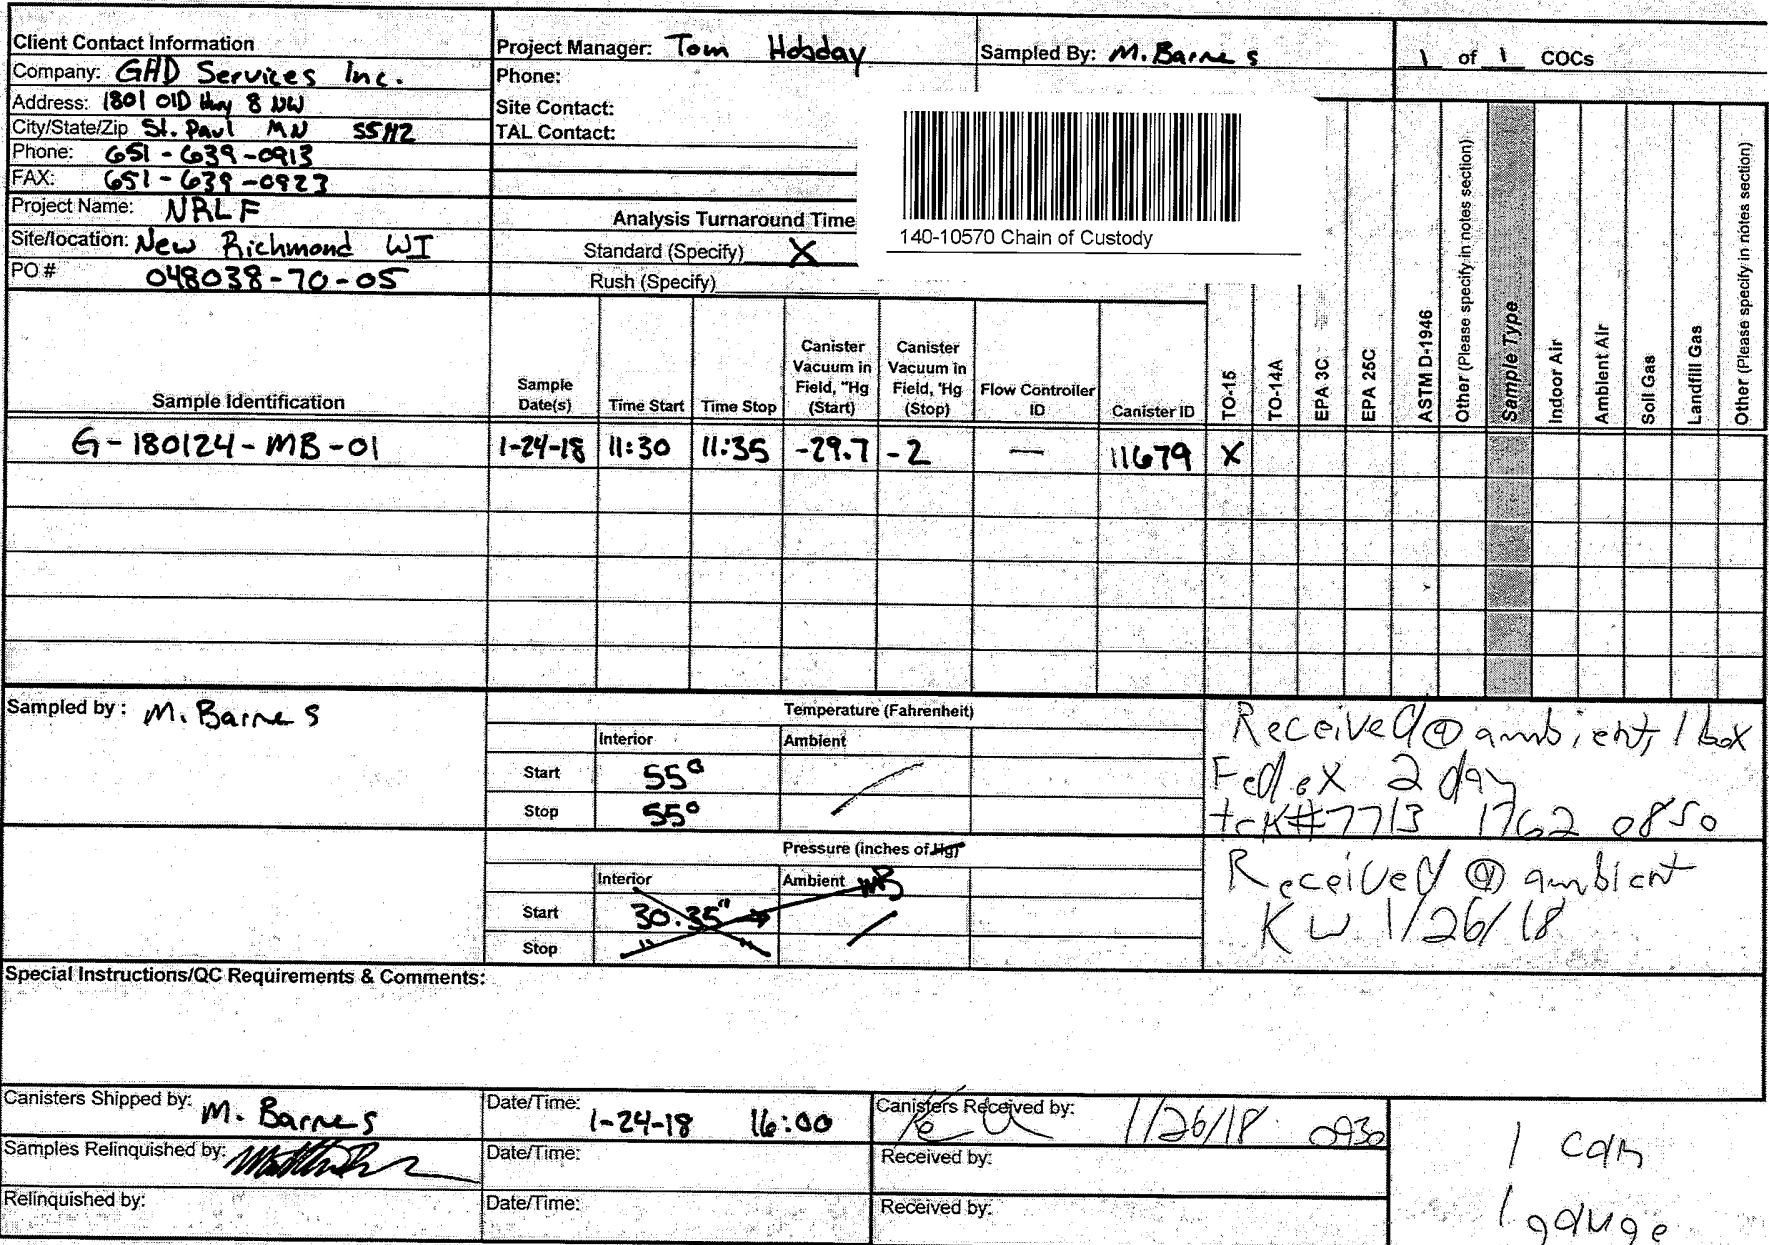 Client Contact Information
Company: GHD Services Inc.
Address: 1801 Old Hwy 8 NW
City/State/Zip St. Paul MN 55112
Phone: 651-639-0913
FAX: 651-639-0923
Project Name: NRLF
Site/location: New Richmond WI
PO # 048038-70-05
Project Manager: Tom Hobday
Phone:
Site Contact:
TAL Contact:
Analysis Turnaround Time
Standard (Specify) X
Rush (Specify)
Sampled By: M. Barnes
1 of 1 COCs
140-10570 Chain of Custody
Sample Identification
Sample Date(s)
Time Start
Time Stop
Canister Vacuum in Field, "Hg (Start)
Canister Vacuum in Field, 'Hg (Stop)
Flow Controller ID
Canister ID
TO-15
TO-14A
EPA 3C
EPA 25C
ASTM D-1946
Other (Please specify in notes section)
Sample Type
Indoor Air
Ambient Air
Soil Gas
Landfill Gas
Other (Please specify in notes section)
G-180124-MB-01 1-24-18 11:30 11:35 -29.7 -2 — 11679 X
Sampled by: M. Barnes
Temperature (Fahrenheit)
Interior Ambient
Start 55°
Stop 55°
Pressure (inches of Hg)
Interior Ambient MB
Start 30.35"
Stop " "
Received @ ambient, 1 box
FedEx 2 day
trk# 7713 1762 0850
Received @ ambient
KW 1/26/18
Special Instructions/QC Requirements & Comments:
Canisters Shipped by: M. Barnes
Date/Time: 1-24-18 16:00
Canisters Received by: 1/26/18 0930
Samples Relinquished by:
Date/Time:
Received by:
Relinquished by:
Date/Time:
Received by:
1 can
1 gauge